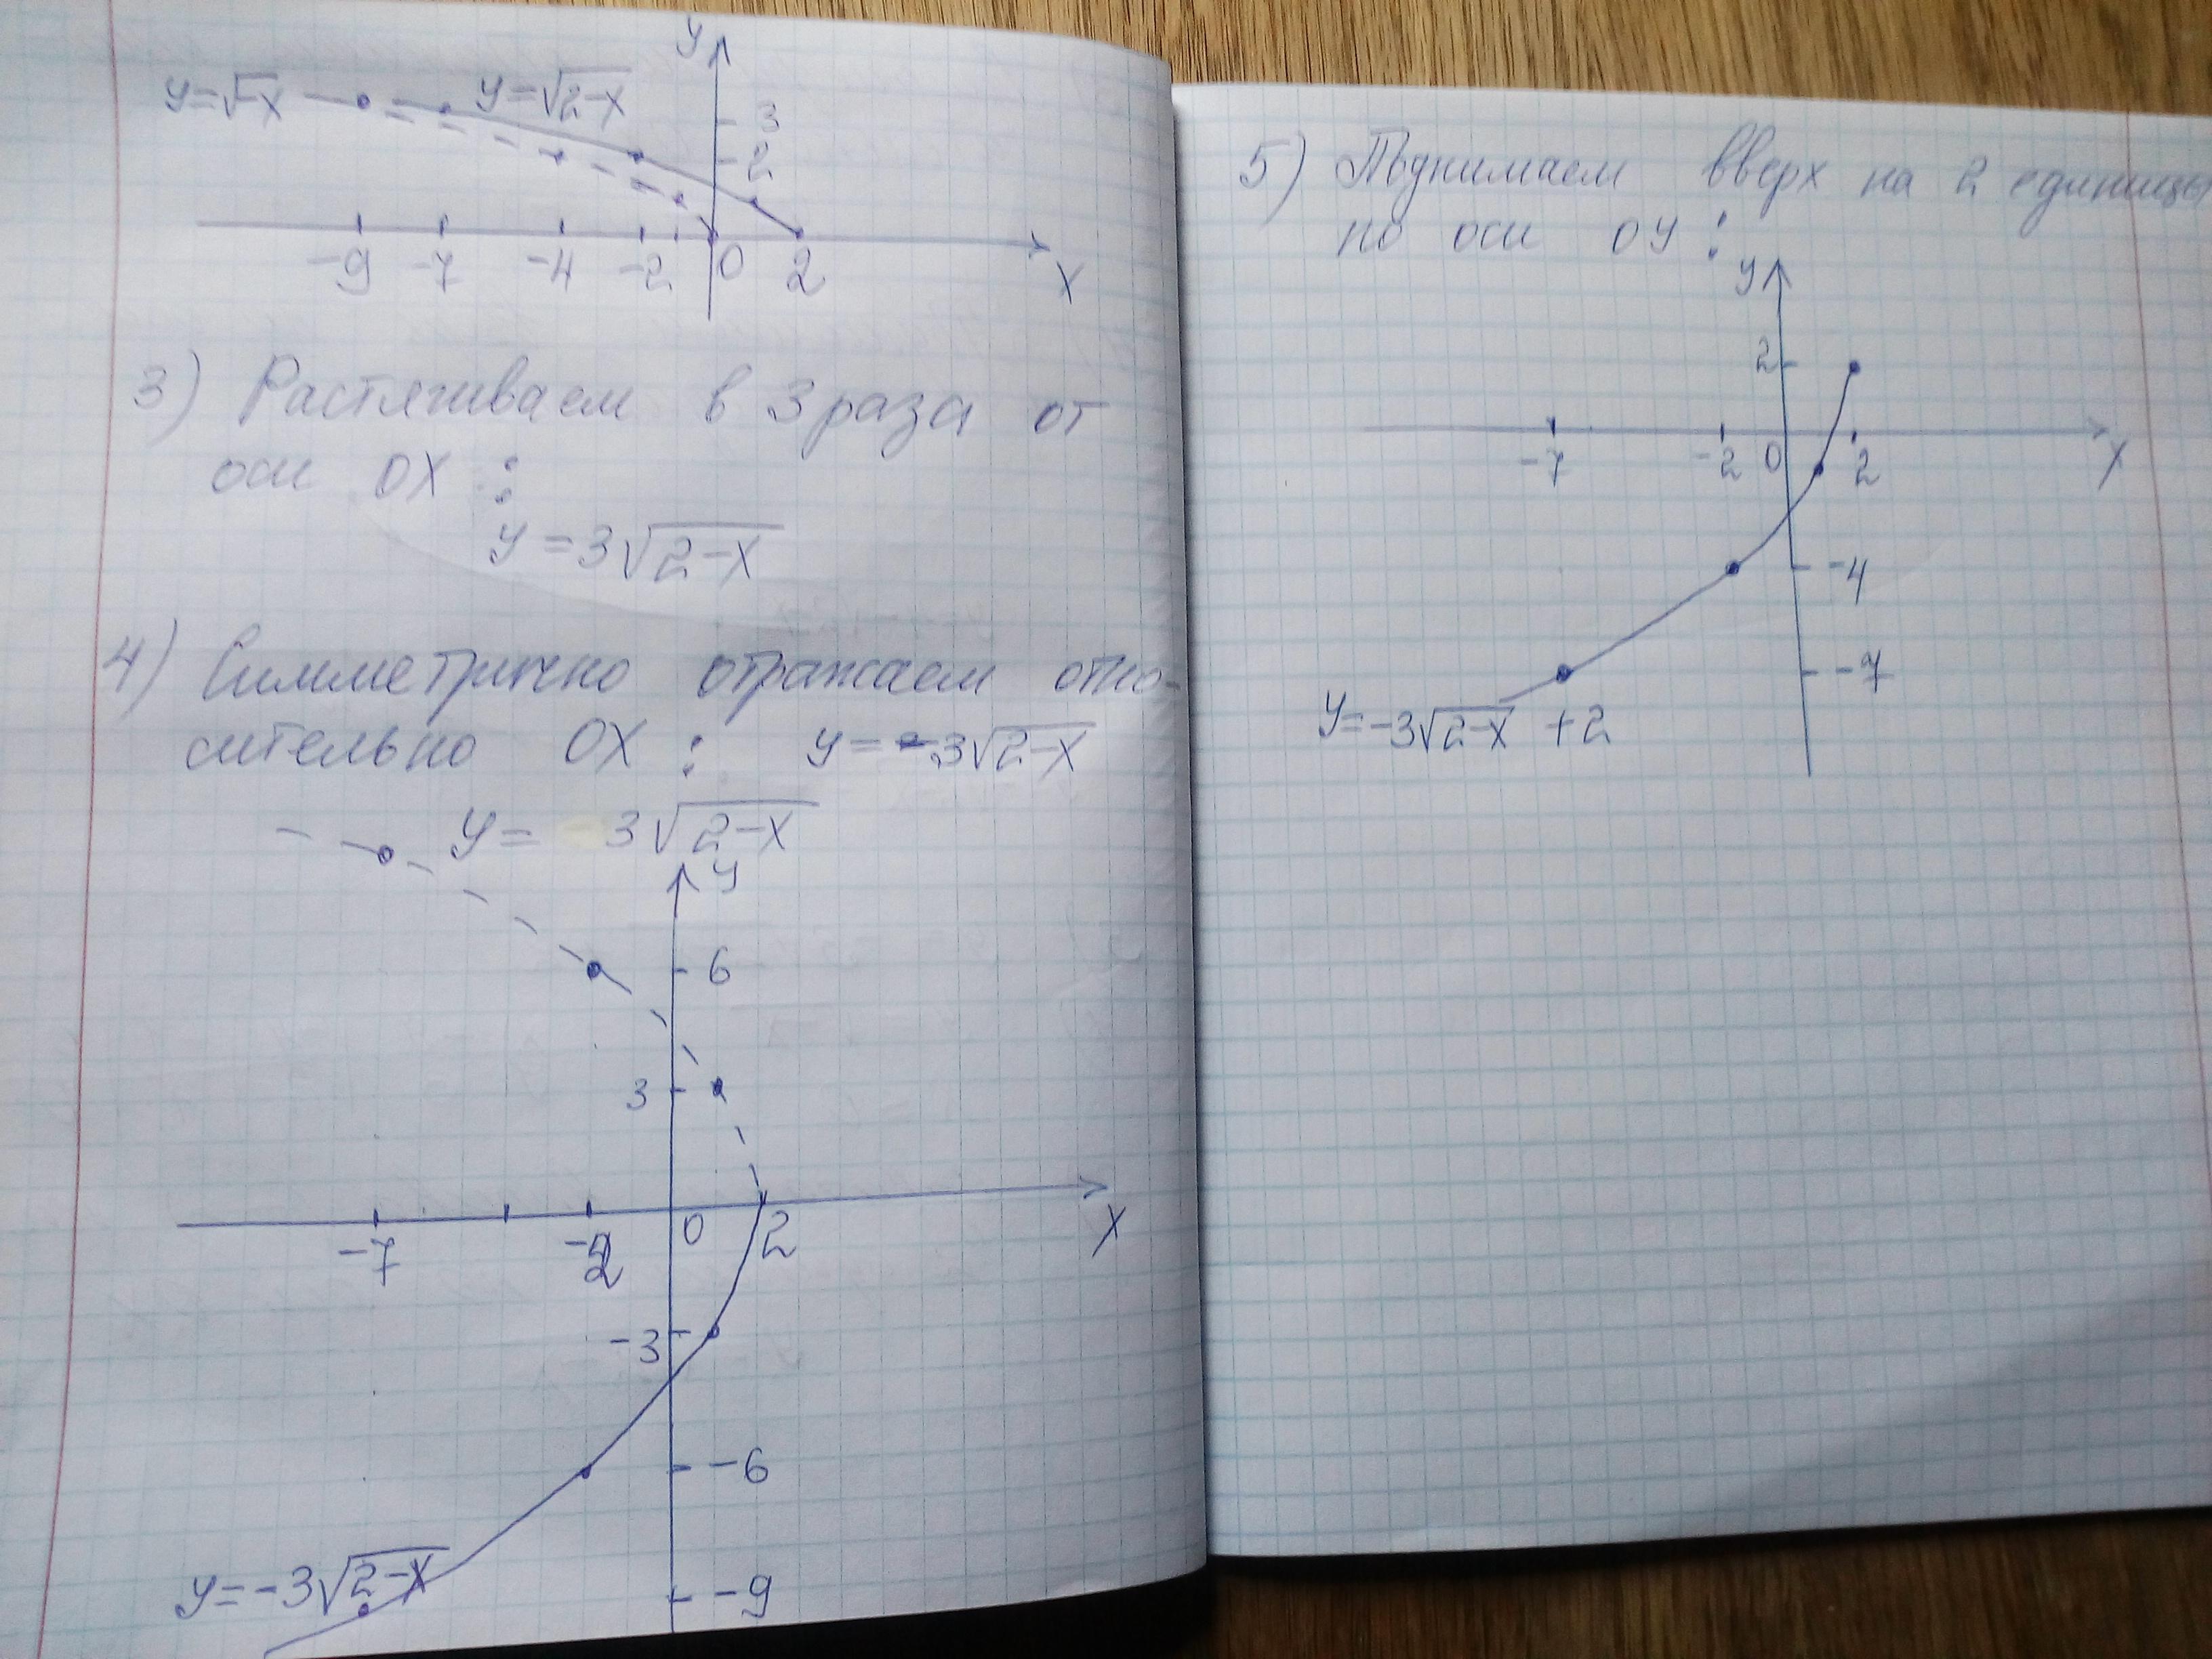 y
y=√-x
y=√2-x
3
2
-9 -7 -4 -2 0 2
x
3) Растягиваем в 3 раза от
оси OX :
y=3√2-x
4) Симметрично отражаем отно-
сительно OX : y=-3√2-x
y= 3√2-x
y
6
3
-7 -2 0 2
x
-3
-6
y=-3√2-x
-9
5) Поднимаем вверх на 2 единицы
по оси OY :
y
2
-7 -2 0 2
x
-4
-7
y=-3√2-x +2